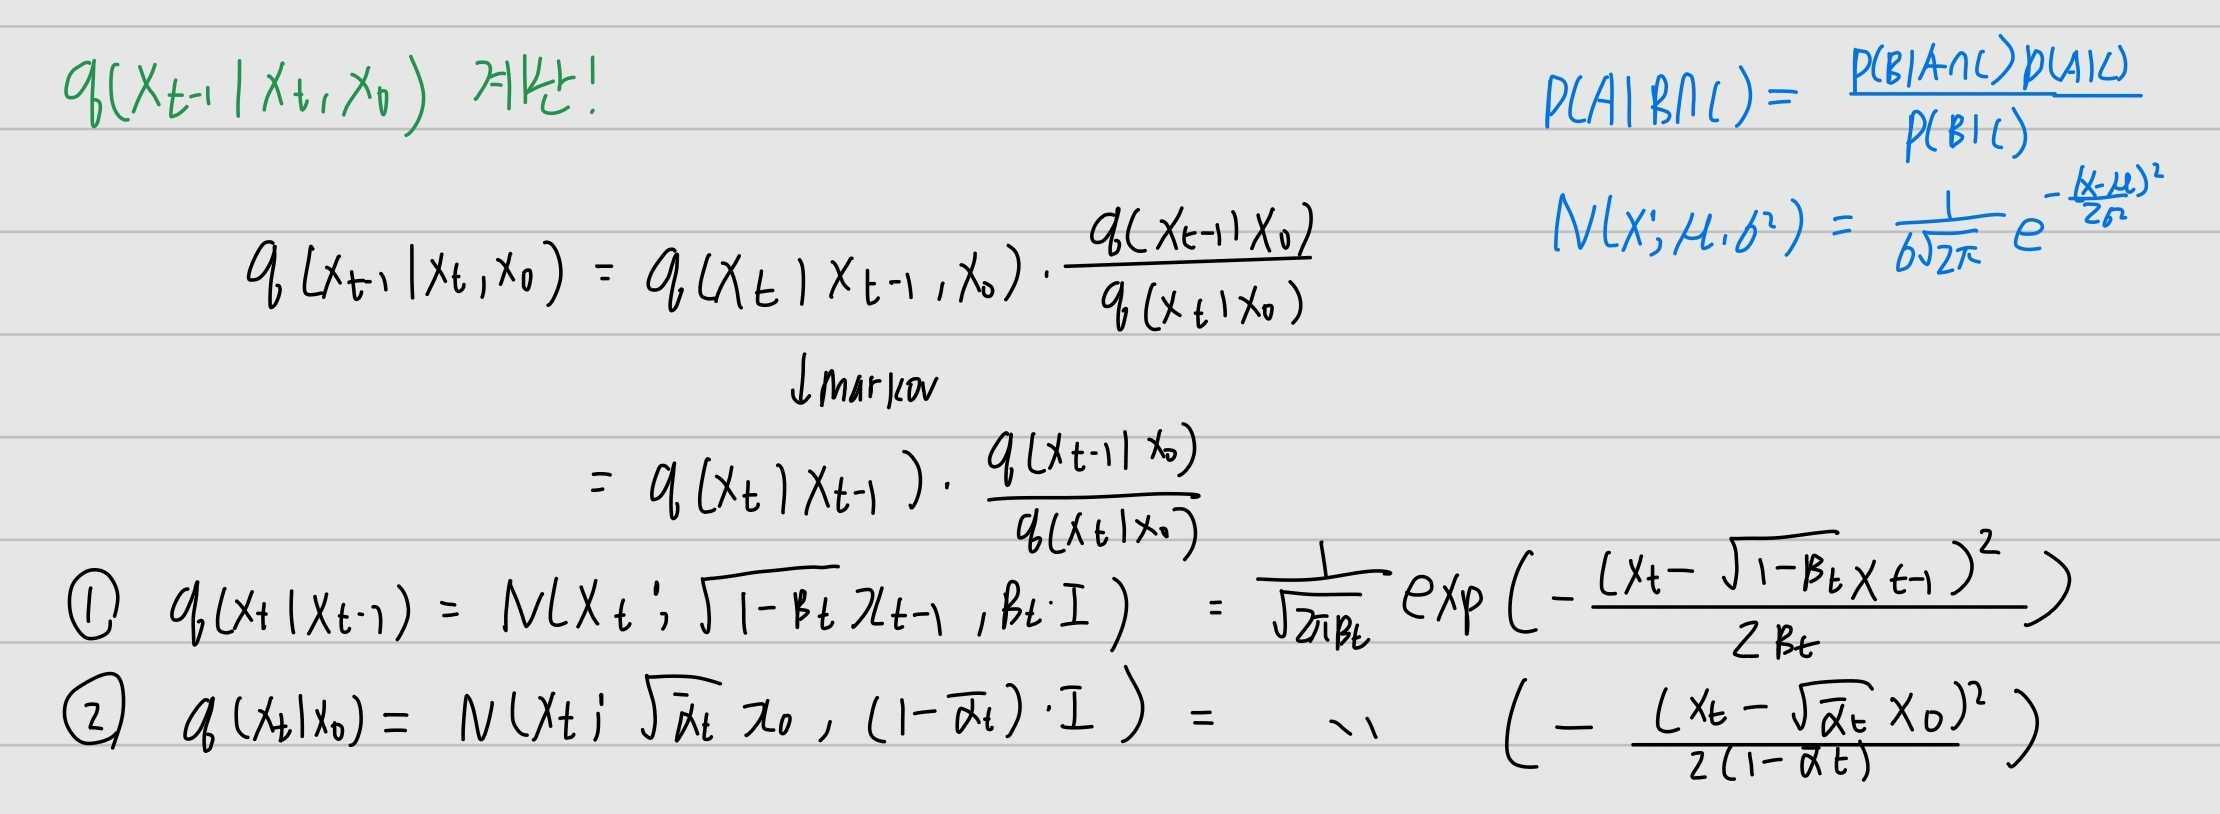 q(x_{t-1} | x_t, x_0) 계산!
P(A|B∩C) = P(B|A∩C)P(A|C) / P(B|C)
N(x; μ, σ²) = 1/(σ√2π) e^{-(x-μ)²/2σ²}
q(x_{t-1} | x_t, x_0) = q(x_t | x_{t-1}, x_0) · q(x_{t-1} | x_0) / q(x_t | x_0)
↓ markov
= q(x_t | x_{t-1}) · q(x_{t-1} | x_0) / q(x_t | x_0)
① q(x_t | x_{t-1}) = N(x_t ; √(1-β_t) x_{t-1}, β_t · I) = 1/√(2πβ_t) exp(- (x_t - √(1-β_t) x_{t-1})² / 2β_t)
② q(x_t | x_0) = N(x_t ; √ᾱ_t x_0, (1-ᾱ_t) · I) = 〃 (- (x_t - √ᾱ_t x_0)² / 2(1-ᾱ_t))